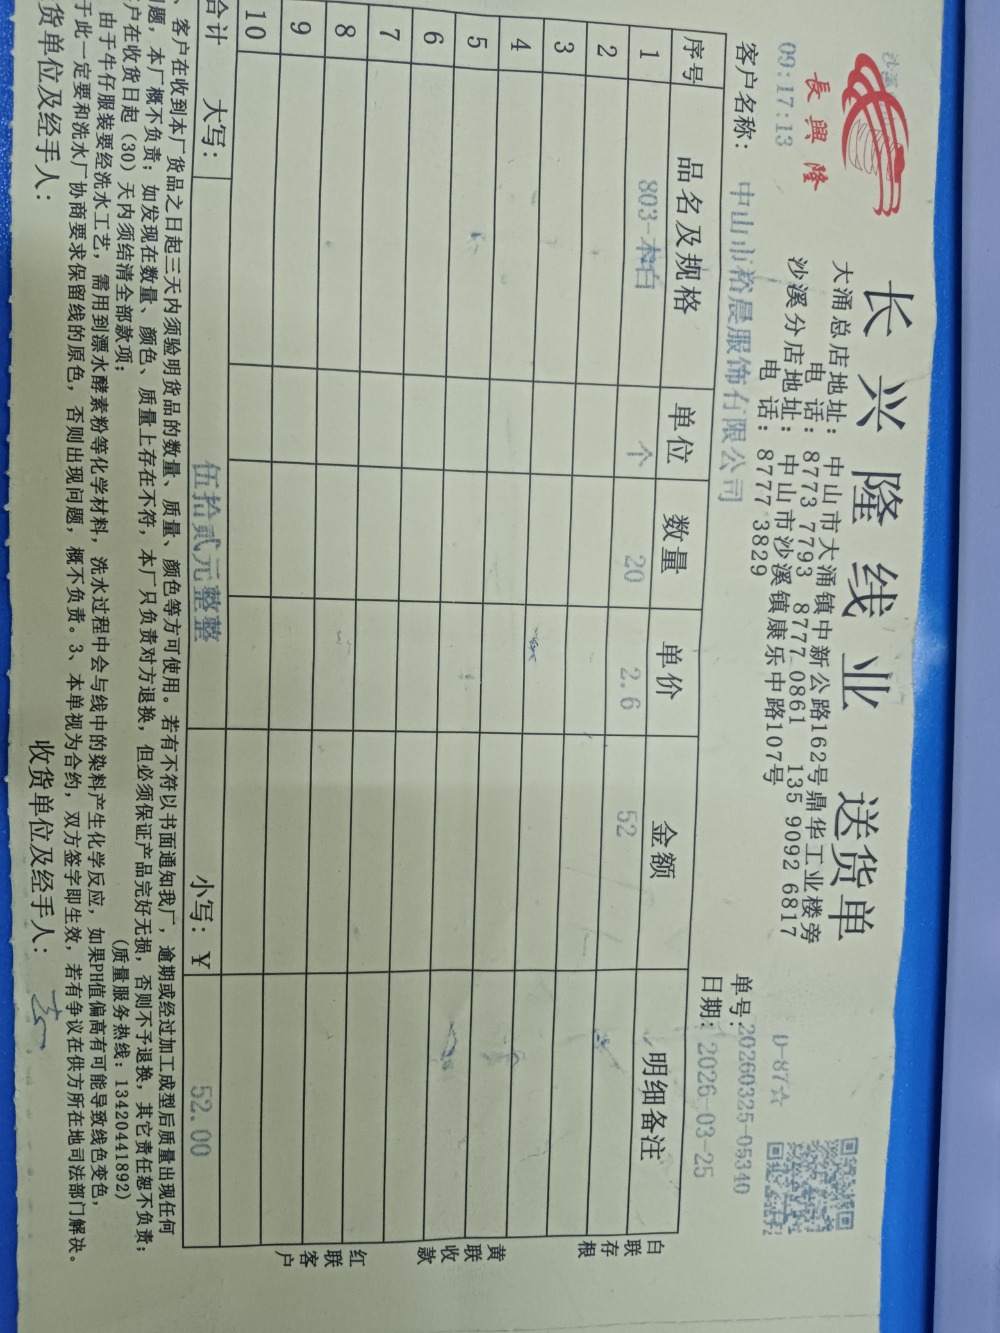 沙溪
長興隆
09:17:13
长兴隆线业 送货单
D-87☆
大涌总店地址:中山市大涌镇中新公路162号鼎华工业楼旁
电 话:8773 7793 8777 0861 135 9092 6817
沙溪分店地址:中山市沙溪镇康乐中路107号
电 话:8777 3829
单号:20260325-05340
客户名称: 中山市裕晨服饰有限公司
日期:2026-03-25
序号 品名及规格 单位 数量 单价 金额 明细备注
1 803-本白 个 20 2.6 52
2
3
4
5
6
7
8
9
10
合计 大写: 伍拾贰元整整 小写:¥ 52.00
白联存根
黄联收款
红联客户
、客户在收到本厂货品之日起三天内须验明货品的数量、质量、颜色等方可使用。若有不符以书面通知我厂,逾期或经过加工成型后质量出现任何
问题,本厂概不负责;如发现在数量、颜色、质量上存在不符,本厂只负责对方退换,但必须保证产品完好无损,否则不予退换,其它责任恕不负责;
客户在收货日起(30)天内须结清全部款项; (质量服务热线:13420441892)
、由于牛仔服装要经洗水工艺,需用到漂水酵素粉等化学材料,洗水过程中会与线中的染料产生化学反应,如果PH值偏高有可能导致线色变色,
于此一定要和洗水厂协商要求保留线的原色,否则出现问题,概不负责。3、本单视为合约,双方签字即生效,若有争议在供方所在地司法部门解决。
货单位及经手人: 收货单位及经手人: